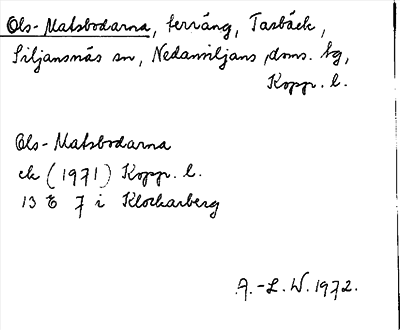 Ols-Matsbodarna, terräng, Tasbäck,
Siljansnäs sn, Nedansiljans doms. tg,
Kopp. l.
Ols-Matsbodarna
ek (1971) Kopp. l.
13 E 7 i Klockarberg
A.-L. W. 1972.